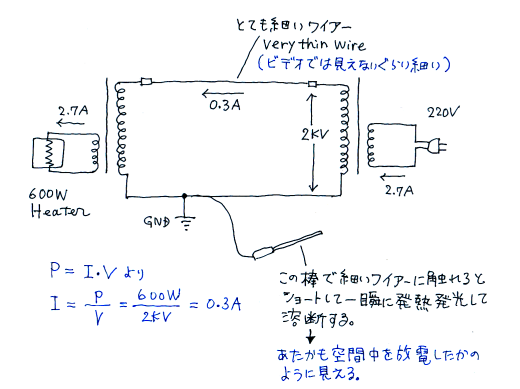 とても細いワイアー
very thin wire
(ビデオでは見えないぐらい細い)
2.7A
0.3A
2KV
220V
2.7A
600W
Heater
GND
P = I・V より
I = P/V = 600W/2KV = 0.3A
この棒で細いワイアーに触れると
ショートして一瞬に発熱発光して
溶断する。
あたかも空間中を放電したかの
ように見える。